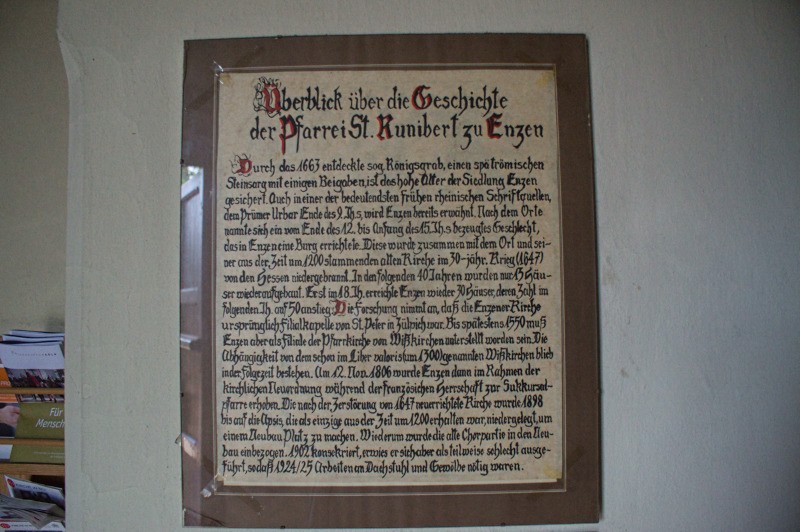 Überblick über die Geschichte
der Pfarrei St. Kunibert zu Enzen
Durch das 1663 entdeckte sog. Königsgrab, einen spätrömischen
Steinsarg mit einigen Beigaben, ist das hohe Alter der Siedlung Enzen
gesichert. Auch in einer der bedeutendsten frühen rheinischen Schriftquellen,
dem Prümer Urbar Ende des 9. Jh.s, wird Enzen bereits erwähnt. Nach dem Orte
nannte sich ein vom Ende des 12. bis Anfang des 15. Jh.s bezeugtes Geschlecht,
das in Enzen eine Burg errichtete. Diese wurde zusammen mit dem Ort und sei-
ner aus der Zeit um 1200 stammenden alten Kirche im 30-jähr. Krieg (1647)
von den Hessen niedergebrannt. In den folgenden 40 Jahren wurden nur 13 Häu-
ser wiederaufgebaut. Erst im 18. Jh. erreichte Enzen wieder 30 Häuser, deren Zahl im
folgenden Jh. auf 50 anstieg. Die Forschung nimmt an, daß die Enzener Kirche
ursprünglich Filialkapelle von St. Peter in Zülpich war. Bis spätestens 1550 muß
Enzen aber als Filiale der Pfarrkirche von Wißkirchen unterstellt worden sein. Die
Abhängigkeit von dem schon im Liber valoris (um 1300) genannten Wißkirchen blieb
in der Folgezeit bestehen. Am 12. Nov. 1806 wurde Enzen dann im Rahmen der
kirchlichen Neuordnung während der französichen Herrschaft zur Sukkursal-
pfarre erhoben. Die nach der Zerstörung von 1647 neuerrichtete Kirche wurde 1898
bis auf die Apsis, die als einzige aus der Zeit um 1200 erhalten war, niedergelegt, um
einem Neubau Platz zu machen. Wiederum wurde die alte Chorpartie in den Neu-
bau einbezogen. 1902 konsekriert, erwies er sich aber als teilweise schlecht ausge-
führt, sodaß 1924/25 Arbeiten an Dachstuhl und Gewölbe nötig waren.
Für
Mensch